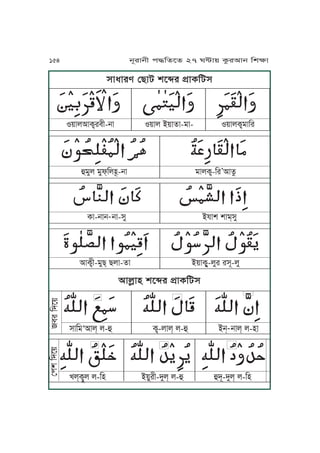 ১৫৪ নূরানী পদ্ধতিতে ২৭ ঘন্টায় কুরআন শিক্ষা
সাধারণ ছোট শব্দের প্র্যাকটিস
وَالْقَمَرِ وَالْيَتٰمٰى وَالْاَقْرَبِيْنَ
ওয়ালক্বমারি ওয়াল ইয়াতা-মা- ওয়ালআক্বরবী-না
مَاالْقَارِعَةُ هُمُ الْمُفْلِحُوْنَ
মালক্ব-রি'আতু হুমুল মুফ্লিহূ-না
اِذَا الشَّمْسُ كَانَ النَّاسُ
ইযাশ শাম্সু কা-নান-না-সু
يَقُوْلُ الرَّسُوْلُ اَقِيْمُوا الصَّلٰوةَ
ইয়াক্বূ-লুর রসূ-লু আক্বী-মুছ্ ছলা-তা
আল্লাহ শব্দের প্র্যাকটিস
যবর দিয়ে
اِنَّ اللّٰهَ قَالَ اللّٰهُ سَمِعَ اللّٰهُ
ইন্-নাল্ ল-হা ক্ব-লাল্ ল-হু সামি'আল্ ল-হু
পেশ দিয়ে
حُدُوْدُ اللّٰهِ يُرِيْدُ اللّٰهُ خَلْقُ اللّٰهِ
হুদূ-দুল্ ল-হি ইয়ুরী-দুল্ ল-হু খল্কুল্ ল-হি